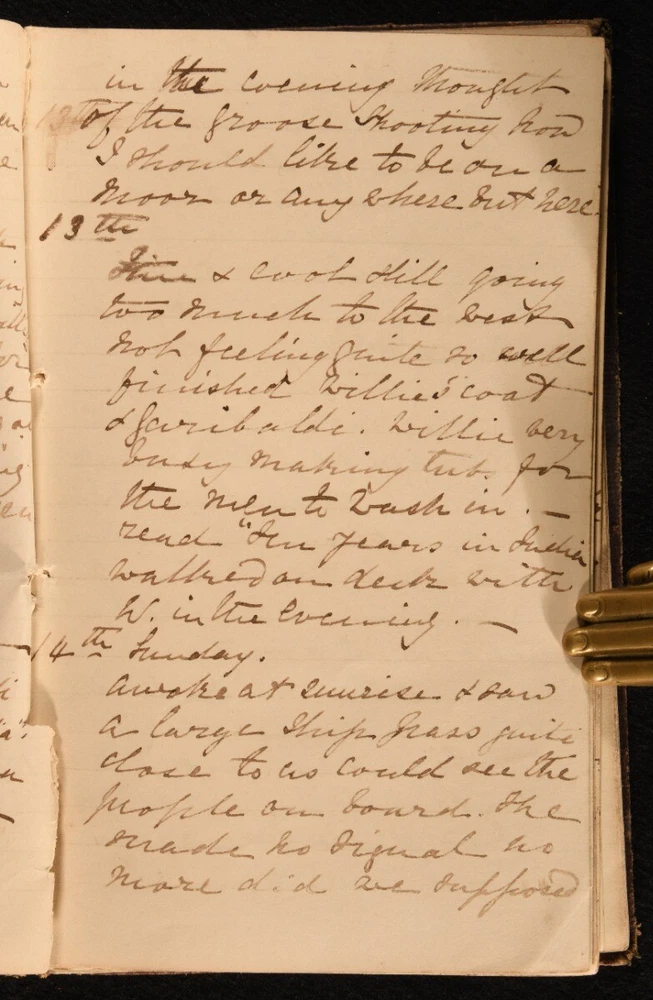 in the evening thought
of the groose shooting how
I should like to be on a
moor or any where but here.
13th
Fine & cool still going
too much to the west
not feeling quite so well
finished Willie's coat
& garibaldi. Willie very
busy making tub. for
the men to wash in. —
read "Ten years in India
walked on deck with
W. in the evening. —
14th Sunday.
awoke at sunrise & saw
a large ship pass quite
close to us could see the
people on board. She
made no signal no
more did we supposed